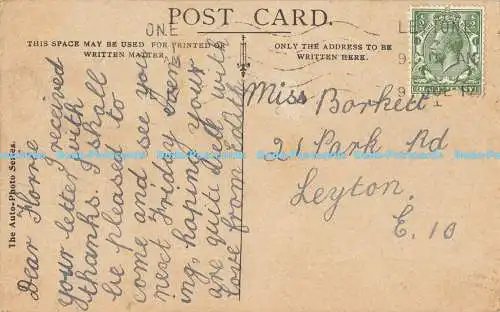 POST CARD.
THIS SPACE MAY BE USED FOR PRINTED
WRITTEN MATTER.
ONLY THE ADDRESS TO BE
WRITTEN HERE.
The Auto-Photo Series.
Dear Florrie
Your letter received
with
thanks. I shall
be pleased to
come and see you
next Friday even
ing, hoping your
are quite well with
love from Edith
Miss Borkett
21 Park Rd
Leyton.
E. 10